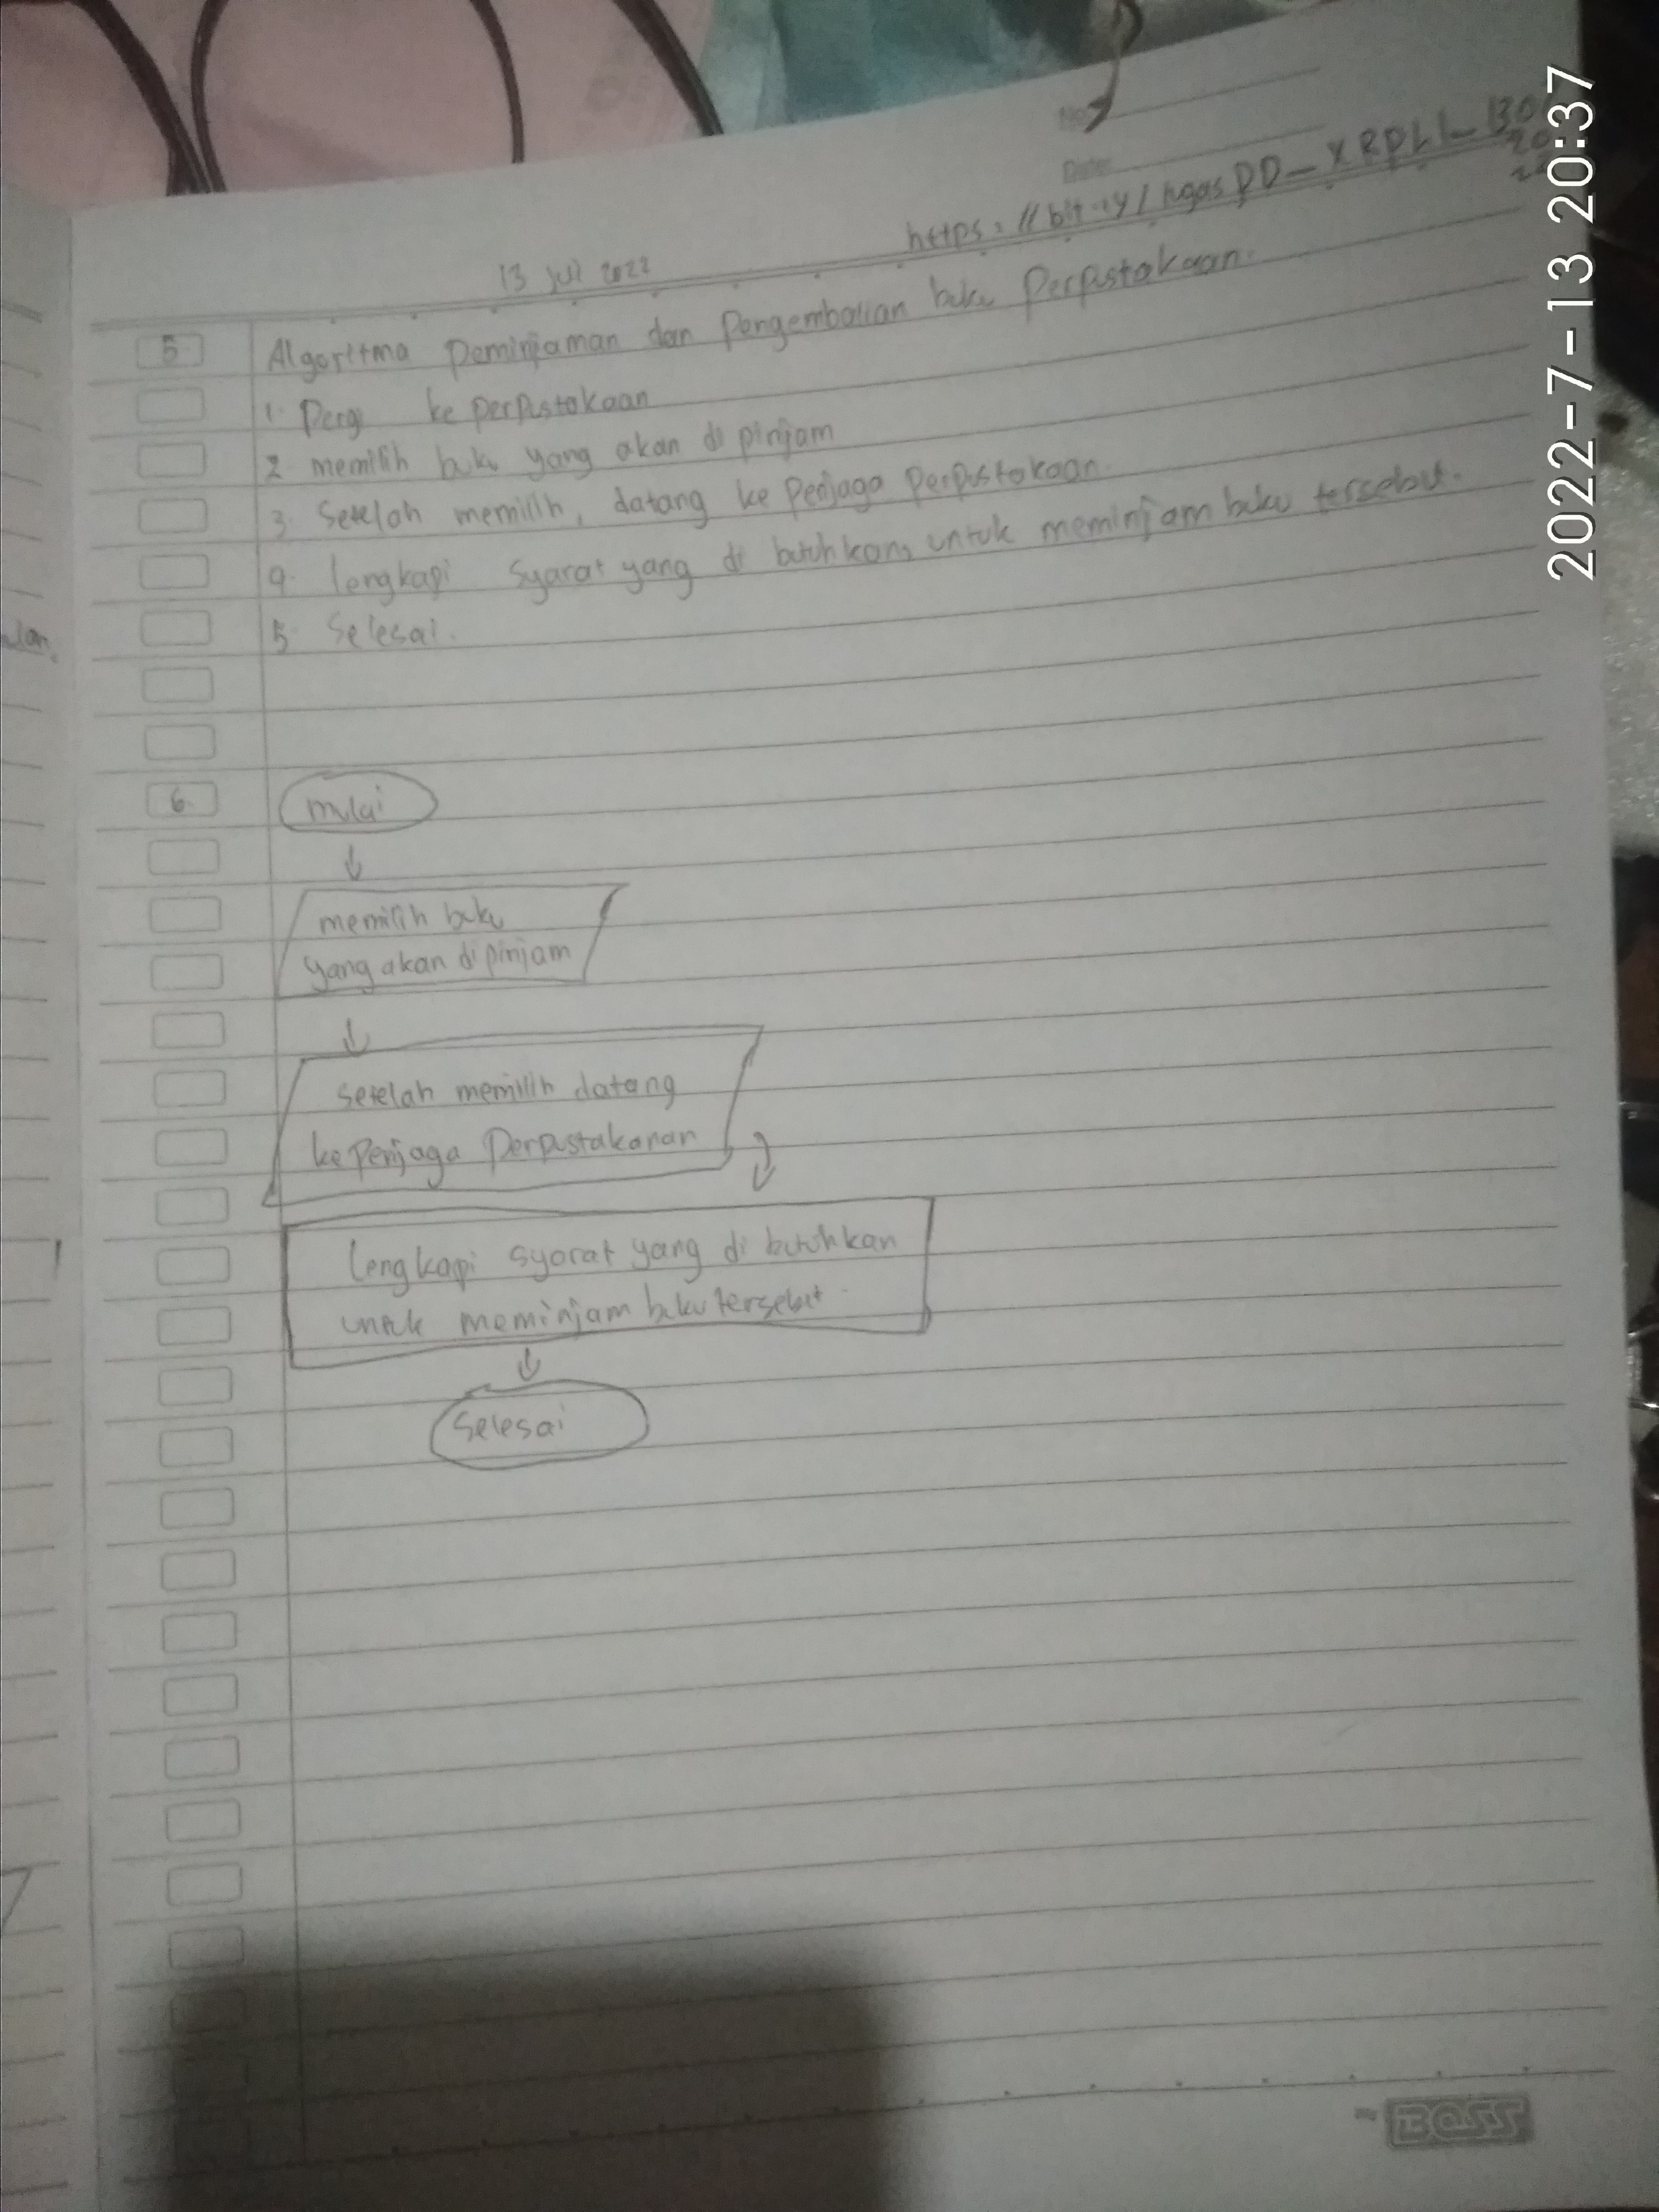 No
Date
https://bit.ly/tugasDD_XRPL1_130
20
13 Juli 2022
5. Algoritma Peminjaman dan Pengembalian buku Perpustakaan.
1. Pergi ke perpustakaan
2. memilih buku yang akan di pinjam
3. Setelah memilih, datang ke Penjaga Perpustakaan.
4. lengkapi syarat yang di butuhkan, untuk meminjam buku tersebut.
5. Selesai.
6. mulai
memilih buku
yang akan dipinjam
setelah memilih datang
ke Penjaga Perpustakanan
lengkapi syarat yang di butuhkan
untuk meminjam buku tersebut.
Selesai
BOSS
2022-7-13 20:37